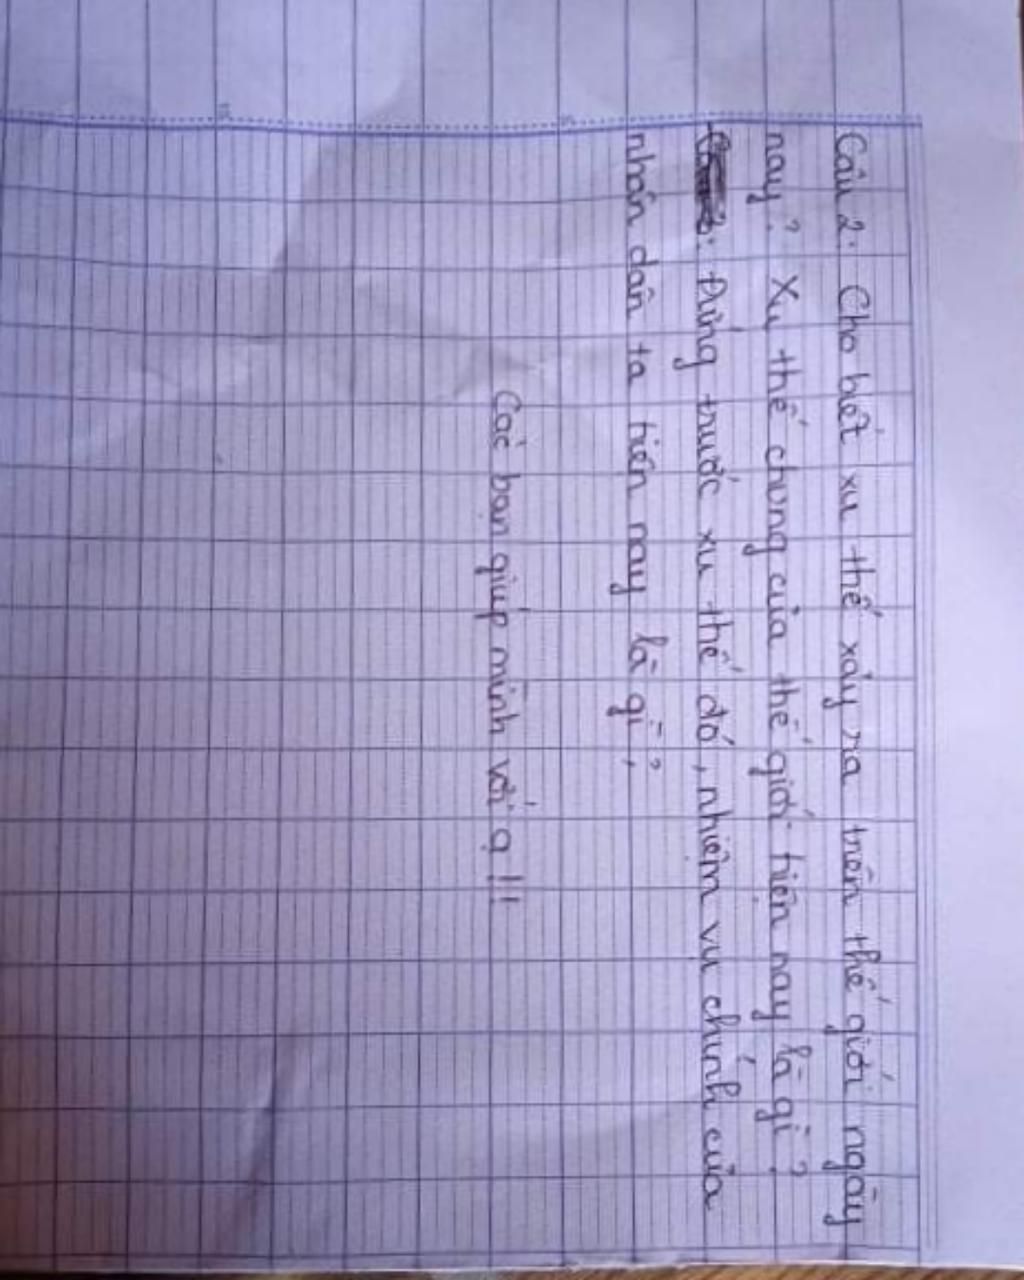 Câu 2: Cho biết xu thế xảy ra trên thế giới ngày
nay? Xu thế chung của thế giới hiện nay là gì?
: Đứng trước xu thế đó, nhiệm vụ chính của
nhân dân ta hiện nay là gì?
Các bạn giúp mình với ạ!!